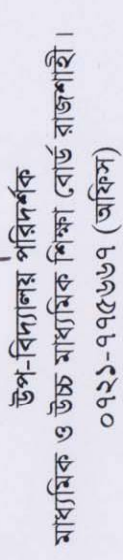 উপ-বিদ্যালয় পরিদর্শক
মাধ্যমিক ও উচ্চ মাধ্যমিক শিক্ষা বোর্ড রাজশাহী।
০৭২১-৭৭৫৬৬৭ (অফিস)